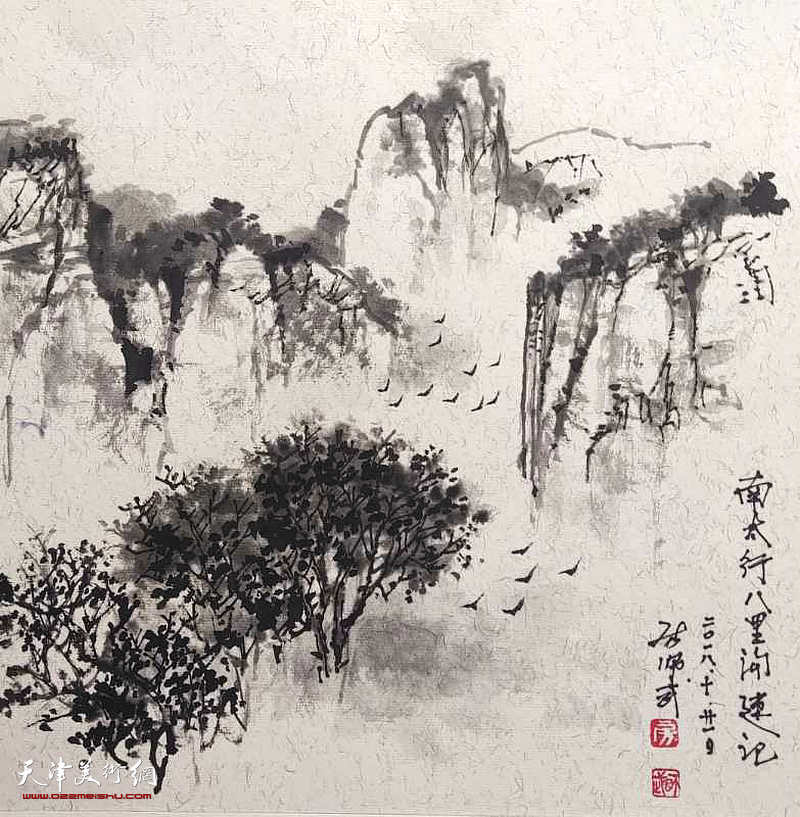 南太行八里沟速记
二〇一八、十、廿一日
房师武
天津美術網
www.022meishu.com